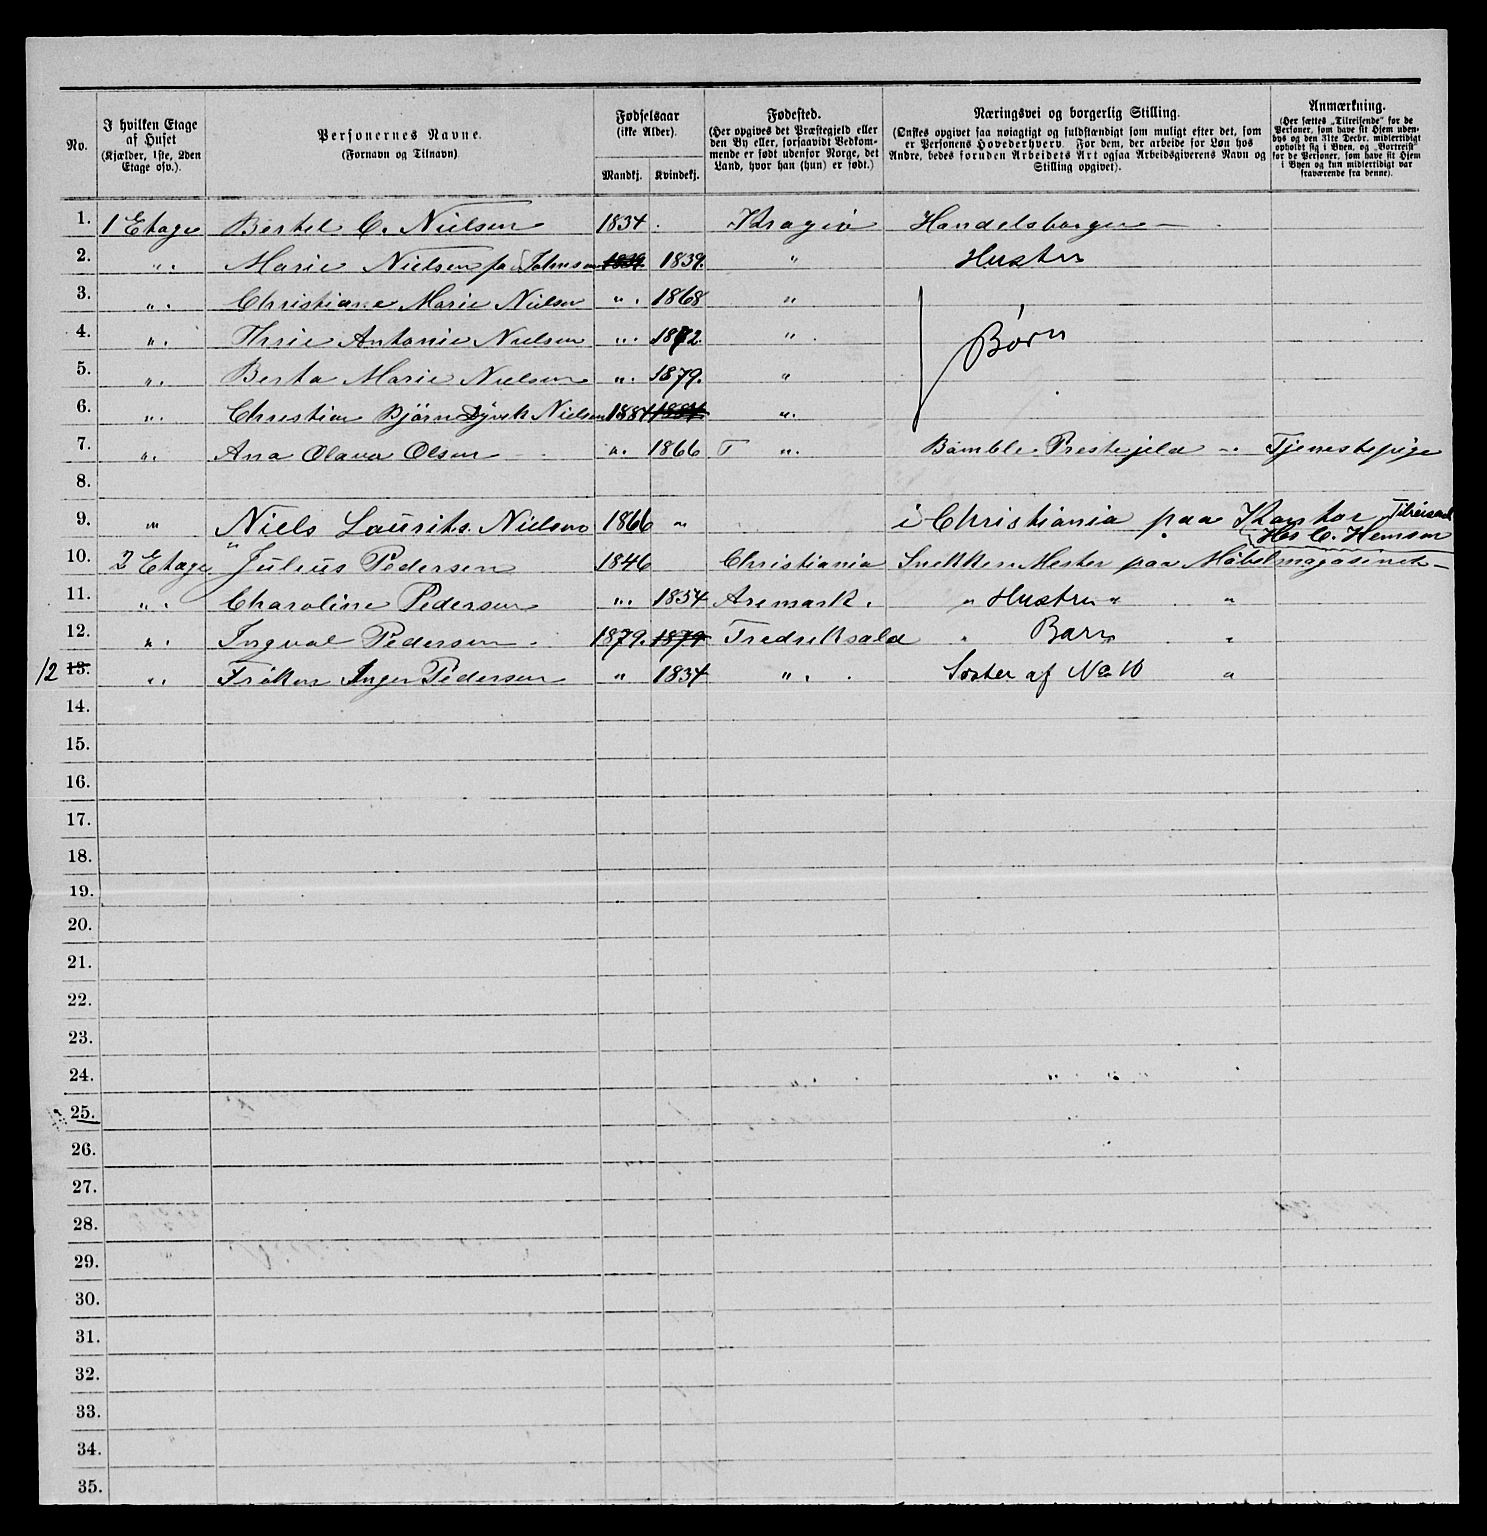 No.
I hvilken Etage af Huset (Kjælder, 1ste, 2den Etage osv.).
Personernes Navne. (Fornavn og Tilnavn)
Fødselsaar (ikke Alder).
Mandkj. Kvindekj.
Fødested. (Her opgives det Præstegjeld eller den By eller, forsaavidt Vedkommende er født udenfor Norge, det Land, hvor han (hun) er født.)
Næringsvei og borgerlig Stilling. (Ønskes opgivet saa nøiagtigt og fuldstændigt som muligt efter det, som er Personens Hovederhverv. For dem, der arbeide for Løn hos Andre, bedes foruden Arbeidets Art ogsaa Arbeidsgiverens Navn og Stilling opgivet).
Anmærkning. (Her sættes „Tilreisende" for de Personer, som have sit Hjem udenbys og den 31te Decbr. midlertidigt opholdt sig i Byen, og „Bortreist" for de Personer, som have sit Hjem i Byen og kun midlertidigt var fraværende fra denne).
1. 1 Etage Bertel C. Nielsen 1834 . Kragerø Handelsborger —
2. „. Marie Nielsen fø Johnsen 1839 1839. „ Hustru
3. „. Christiane Marie Nielsen „. 1868 „
4. „. Antonie Nielsen „. 1872. „. Børn
5. „. Berta Marie Nielsen „. 1879. „
6. „. Christian Bjørn Nielsen 1884 1884 „.
7. „. Ana Olava Olsen „. 1866 T „. Bamble Prestejeld -. Tjenestepige
8.
9. „ Niels Laurits. Nielsen 1866 „ i Christiania paa Kontor Tilreisend
Hos C.
10. 2 Etage Julius Pedersen 1846 Christiania Snekker Mester paa Møbelmagasinet —
11. „. Charoline Pedersen „. 1854 Aremark. „ Hustru „ „
12. „. Ingval Pedersen. 1879. 1879 Fredriksald „ Barn „
12 13. „. Frøken Inger Pedersen „ 1834 „. Søster af No 10 „
14.
15.
16.
17.
18.
19.
20.
21.
22.
23.
24.
25.
26.
27.
28.
29.
30.
31.
32.
33.
34.
35.